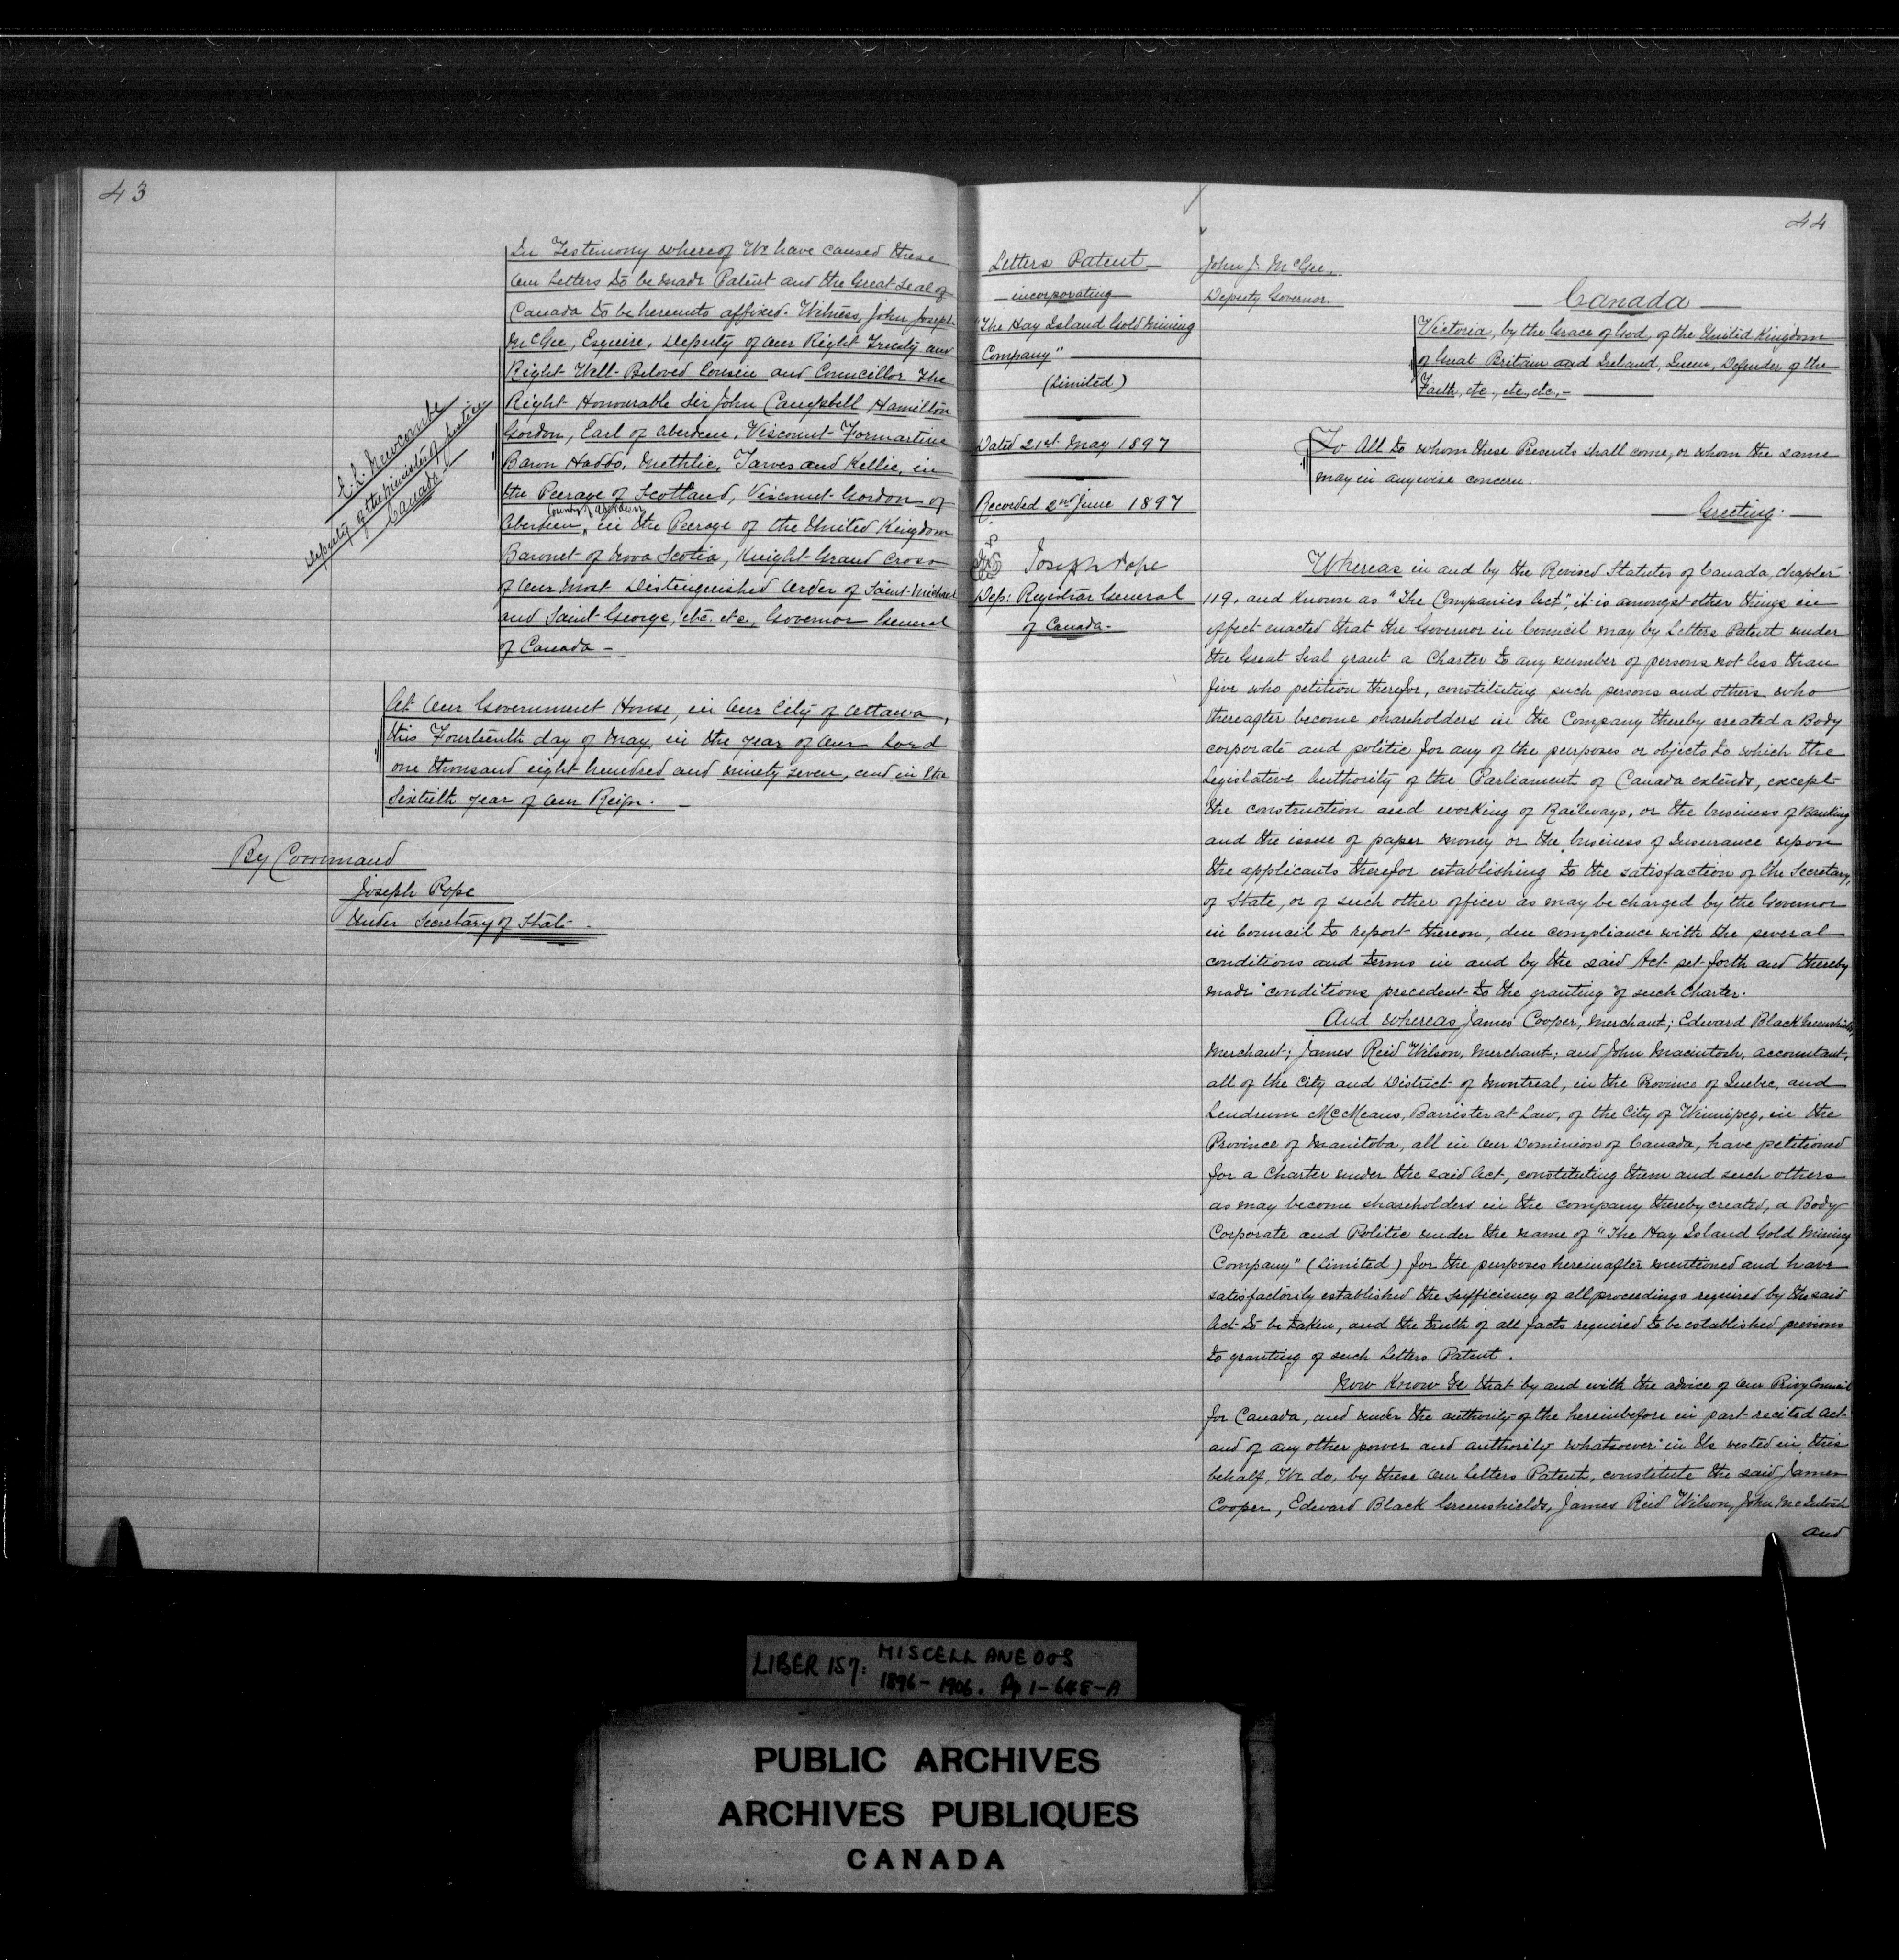 43
In Testimony whereof We have caused these
Our Letters to be made Patent and the Great Seal of
Canada to be hereunto affixed. Witness, John Joseph
McGee, Esquire, Deputy of Our Right Trusty and
Right Well-Beloved Cousin and Councillor The
Right Honourable Sir John Campbell Hamilton
Gordon, Earl of Aberdeen, Viscount Formartine
Baron Haddo, Methlic, Tarves and Kellie, in
the Peerage of Scotland, Viscount Gordon of
County Aberdeen
Aberdeen, in the Peerage of the United Kingdom
Baronet of Nova Scotia, Knight Grand Cross
of Our Most Distinguished Order of Saint Michael
and Saint George, etc. etc., Governor General
of Canada -
E. L. Newcombe
Deputy of the Minister of Justice
Canada
At Our Government House, in Our City of Ottawa,
this Fourteenth day of May in the year of Our Lord
one thousand eight hundred and ninety seven, and in the
Sixtieth year of Our Reign. -
By Command
Joseph Pope
Under Secretary of State -
44
Letters Patent
incorporating
"The Hay Island Gold Mining
Company"
(Limited)
Dated 21st May 1897
Recorded 2nd June 1897
Joseph Pope
Dep: Registrar General
of Canada.
John J. McGee,
Deputy Governor.
Canada
Victoria, by the Grace of God, of the United Kingdom
of Great Britain and Ireland, Queen, Defender of the
Faith, etc., etc., etc., -
To All to whom these Presents shall come, or whom the same
may in anywise concern.
Greeting:
Whereas in and by the Revised Statutes of Canada, chapter
119, and known as "The Companies Act", it is amongst other things in
effect enacted that the Governor in Council may by Letters Patent under
the Great Seal grant a Charter to any number of persons not less than
five who petition therefor, constituting such persons and others who
thereafter become shareholders in the Company thereby created a Body
corporate and politic for any of the purposes or objects to which the
Legislative Authority of the Parliament of Canada extends, except
the construction and working of Railways, or the business of Banking
and the issue of paper money or the business of Insurance upon
the applicants therefor establishing to the satisfaction of the Secretary,
of State, or of such other officer as may be charged by the Governor
in Council to report thereon, due compliance with the several
conditions and terms in and by the said Act set forth and thereby
made conditions precedent to the granting of such Charter.
And whereas James Cooper, Merchant; Edward Black Greenshields,
Merchant; James Reid Wilson, Merchant; and John Macintosh, accountant,
all of the City and District of Montreal, in the Province of Quebec, and
Lendrum McMeans, Barrister at Law, of the City of Winnipeg, in the
Province of Manitoba, all in Our Dominion of Canada, have petitioned
for a Charter under the said Act, constituting them and such others
as may become shareholders in the company thereby created, a Body
Corporate and Politic under the name of "The Hay Island Gold Mining
Company" (Limited) for the purposes hereinafter mentioned and have
satisfactorily established the sufficiency of all proceedings required by the said
Act to be taken, and the truth of all facts required to be established previous
to granting of such Letters Patent.
Now Know Ye that by and with the advice of Our Privy Council
for Canada, and under the authority of the hereinbefore in part recited Act
and of any other power and authority whatsoever in Us vested in this
behalf, We do, by these Our Letters Patent, constitute the said James
Cooper, Edward Black Greenshields, James Reid Wilson, John McIntosh
and
LIBER 157: MISCELLANEOUS
1896-1906. Pp 1-648-A
PUBLIC ARCHIVES
ARCHIVES PUBLIQUES
CANADA